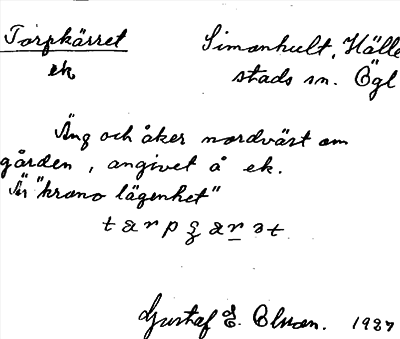 Torpkärret Simonhult, Hälle
ek stads sn. Ögl
Äng och åker nordväst om
gården, angivet å ek.
Är "krono lägenhet"
Gustaf E. Olsson. 1937